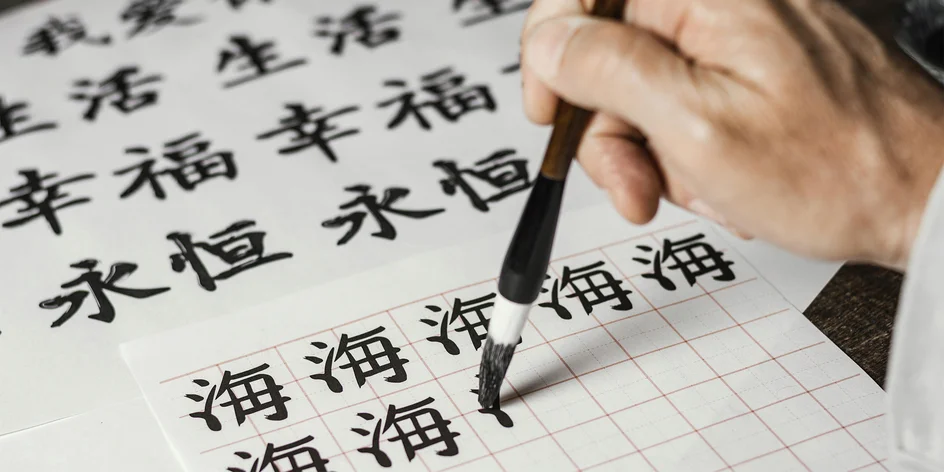 我爱
生活 生活
幸福 幸福
永恒 永恒
海 海 海 海 海
海 海